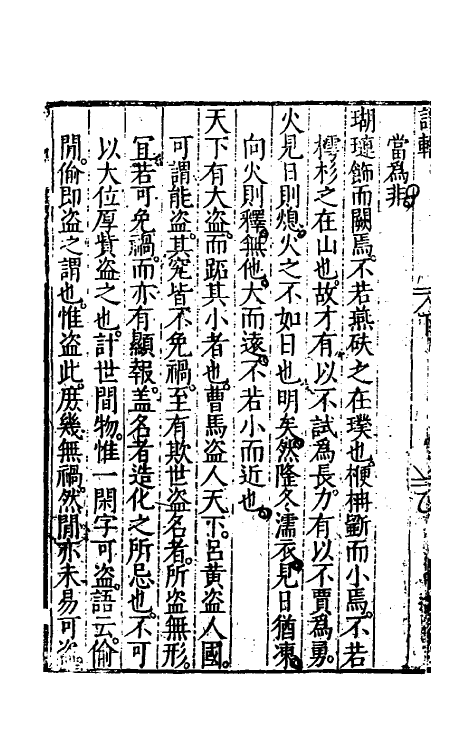 當為非
瑚璉飾而闕焉。不若燕砆之在璞也。楩柟斷而小焉。不若
樗杉之在山也。故才有以不試為長。力有以不賈為勇。
火見日則熄。火之不如日也明矣。然隆冬濡衣。見日猶凍。
向火則釋。無他。大而遠。不若小而近也。
天下有大盜。而跖其小者也。曹馬盜人天下。呂黃盜人國。
可謂能盜。其究皆不免禍。至有欺世盜名者。所盜無形。
宜若可免禍。而亦有顯報。蓋名者造化之所忌也。不可
以大位厚貲盜之也。計世間物。惟一閑字可盜。語云。偷
閒。偷即盜之謂也。惟盜此。庶幾無禍。然閒亦未易可盜。